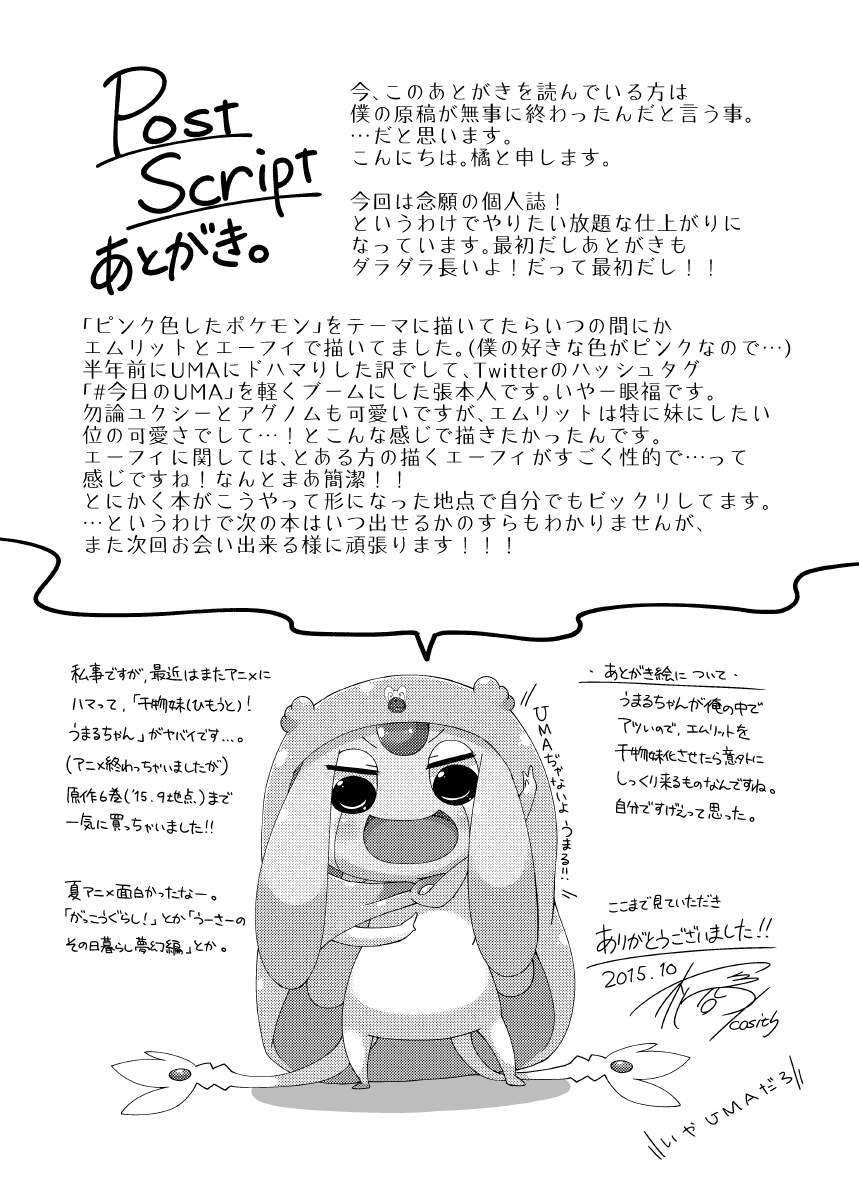 Post
Script
あとがき。
今、このあとがきを読んでいる方は
僕の原稿が無事に終わったんだと言う事。
…だと思います。
こんにちは。橘と申します。
今回は念願の個人誌！
というわけでやりたい放題な仕上がりに
なっています。最初だしあとがきも
ダラダラ長いよ！だって最初だし！！
「ピンク色したポケモン」をテーマに描いてたらいつの間にか
エムリットとエーフィで描いてました。(僕の好きな色がピンクなので…)
半年前にUMAにドハマりした訳でして、Twitterのハッシュタグ
「#今日のUMA」を軽くブームにした張本人です。いやー眼福です。
勿論ユクシーとアグノムも可愛いですが、エムリットは特に妹にしたい
位の可愛さでして…！とこんな感じで描きたかったんです。
エーフィに関しては、とある方の描くエーフィがすごく性的で…って
感じですね！なんとまあ簡潔！！
とにかく本がこうやって形になった地点で自分でもビックリしてます。
…というわけで次の本はいつ出せるかのすらもわかりませんが、
また次回お会い出来る様に頑張ります！！！
私事ですが、最近はまたアニメに
ハマって、「干物妹(ひもうと)！
うまるちゃん」がヤバイです…。
(アニメ終わっちゃいましたが)
原作6巻('15.9地点)まで
一気に買っちゃいました!!
夏アニメ面白かったなー。
「がっこうぐらし！」とか「うーさーの
その日暮らし夢幻編」とか。
UMAぢゃないよ
うまる!!
・あとがき絵について・
うまるちゃんが俺の中で
アツいので、エムリットを
干物妹化させたら意外に
しっくり来るものなんですね。
自分ですげえって思った。
ここまで見ていただき
ありがとうございました!!
2015.10
橘
cosith
いやUMAだろ